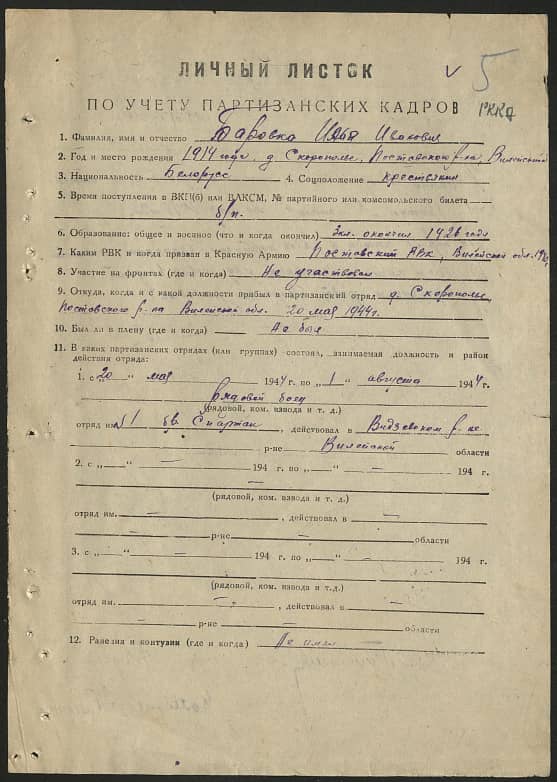 5
ЛИЧНЫЙ ЛИСТОК
ПО УЧЕТУ ПАРТИЗАНСКИХ КАДРОВ РККА
1. Фамилия, имя и отчество Боровко Илья Исакович
2. Год и место рождения 1914 года, д. Скорополье, Поставского р-на, Вилейской
3. Национальность Белорусс 4. Соцположение крестянин
5. Время поступления в ВКП(б) или ВЛКСМ, № партийного или комсомольского билета
б/п.
6. Образование: общее и военное (что и когда окончил) 3кл. окончил 1926 году
7. Каким РВК и когда призван в Красную Армию Поставский РВК, Вилейской обл.
8. Участие на фронтах (где и когда) Не участвовал
9. Откуда, когда и с какой должности прибыл в партизанский отряд д. Скорополье,
Поставского р-на Вилейской обл. 20 мая 1944г.
10. Был ли в плену (где и когда) Не был
11. В каких партизанских отрядах (или группах) состоял, занимаемая должность и район
действия отряда:
1. с „20 “ мая 1944 г. по „1 “ августа 1944 г.
Рядовой боец
(рядовой, ком. взвода и т. д.)
отряд им. №1 бр. Спартак, действовал в Видзевском р-не
р-не Вилейской области
2. с „—“ — 194 г. по „—“ — 194 г.
—
(рядовой, ком. взвода и т. д.)
отряд им. —, действовал в —
— р-не — области
3. с „—“ — 194 г. по „—“ — 194 г.
—
(рядовой, ком. взвода и т.д.)
отряд им. —, действовал в —
— р-не — области
12. Ранения и контузии (где и когда) Не имел